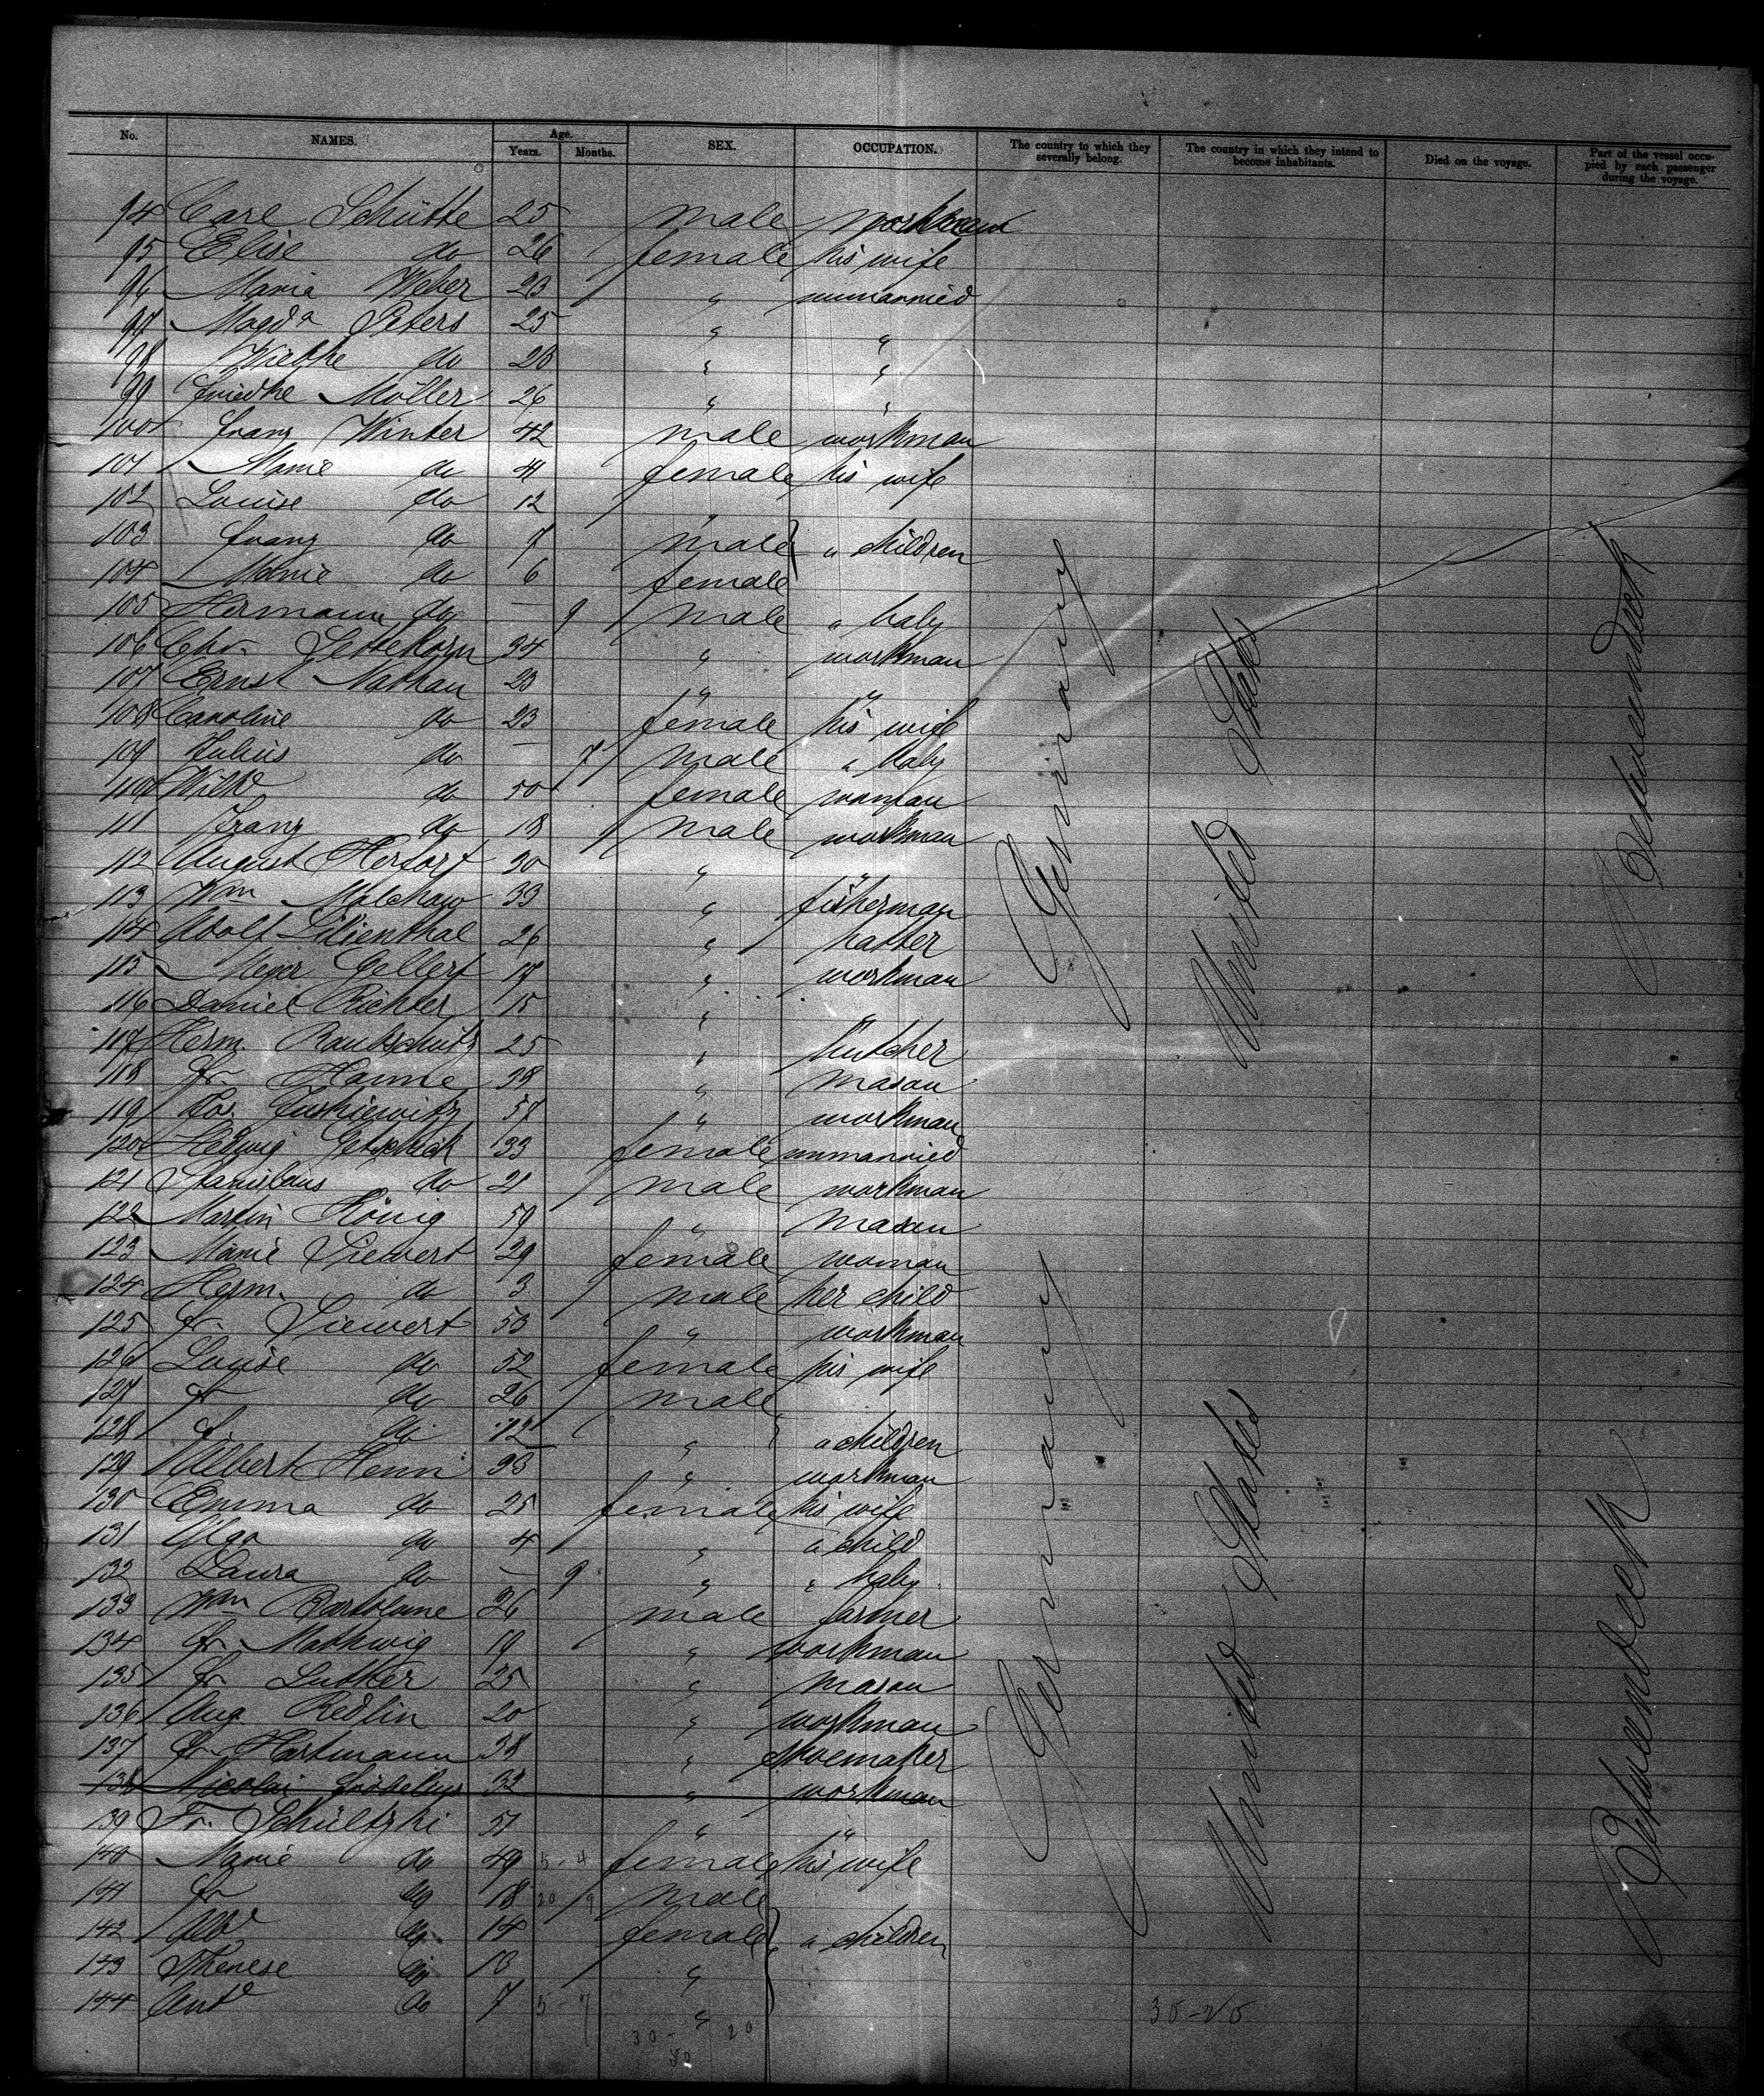 No. NAMES. Age. Years. Months. SEX. OCCUPATION. The country to which they severally belong. The country in which they intend to become inhabitants. Died on the voyage. Part of the vessel occupied by each passenger during the voyage.
94 Carl Schütte 25 male workman
95 Elise do 26 female his wife
96 Maria Weber 23 " unmarried
97 Magda Peters 25 " "
98 Wiebke do 20 " "
99 Friedke Möller 26 " "
100 Franz Winter 42 male workman
101 Marie do 41 female his wife
102 Louise do 12 "
103 Franz do 7 male " children
104 Marie do 6 female
105 Hermann do — 9 male " baby
106 Chr. Settekorn 34 " workman
107 Ernst Nathan 23 " "
108 Caroline do 23 female his wife
109 Julius do — 7 male " baby
110 do 50 female woman
111 Franz do 18 male workman
112 August 30 " "
113 Wm Malchow 33 " fisherman
114 Adolf Lilienthal 26 " hatter
115 Meyer Gellert 17 " workman
116 Daniel Richter 15 " "
117 Herm. 25 " butcher
118 Fr. 38 " mason
119 57 " workman
120 Hedwig 33 female unmarried
121 Stanislaus do 21 male workman
122 Martin König 59 " mason
123 Marie Siewert 29 female woman
124 Herm. do 3 male her child
125 Fr. Siewert 53 " workman
126 Louise do 52 female his wife
127 Fr do 26 male
128 do " " children
129 Albert Henn " workman
130 Emma do 25 female his wife
131 Olga do 4 " " child
132 Laura do — 9 " " baby
133 Wm Bartolome 26 male farmer
134 Fr. Mathwig 19 " workman
135 Fr Luther 25 " mason
136 Aug. Redlin 20 " workman
137 Fr. Hartmann 38 " shoemaker
138 Nicolai 32 " workman
139 Fr. Schültzki 51 " "
140 Marie do 49 5-4 female his wife
141 Fr do 18 20 /9 male
142 do 14 female " children
143 Therese do 10 "
144 do 7 5-7 "
30 - 20
Germany
United States
Betweendeck
Germany
United States
Betweendeck